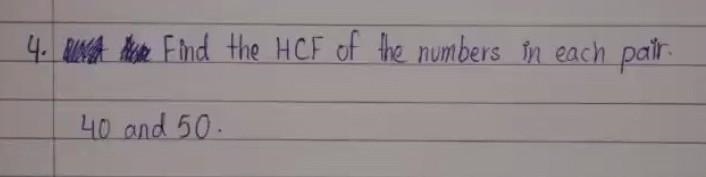 4. Find the HCF of the numbers in each pair.
40 and 50.